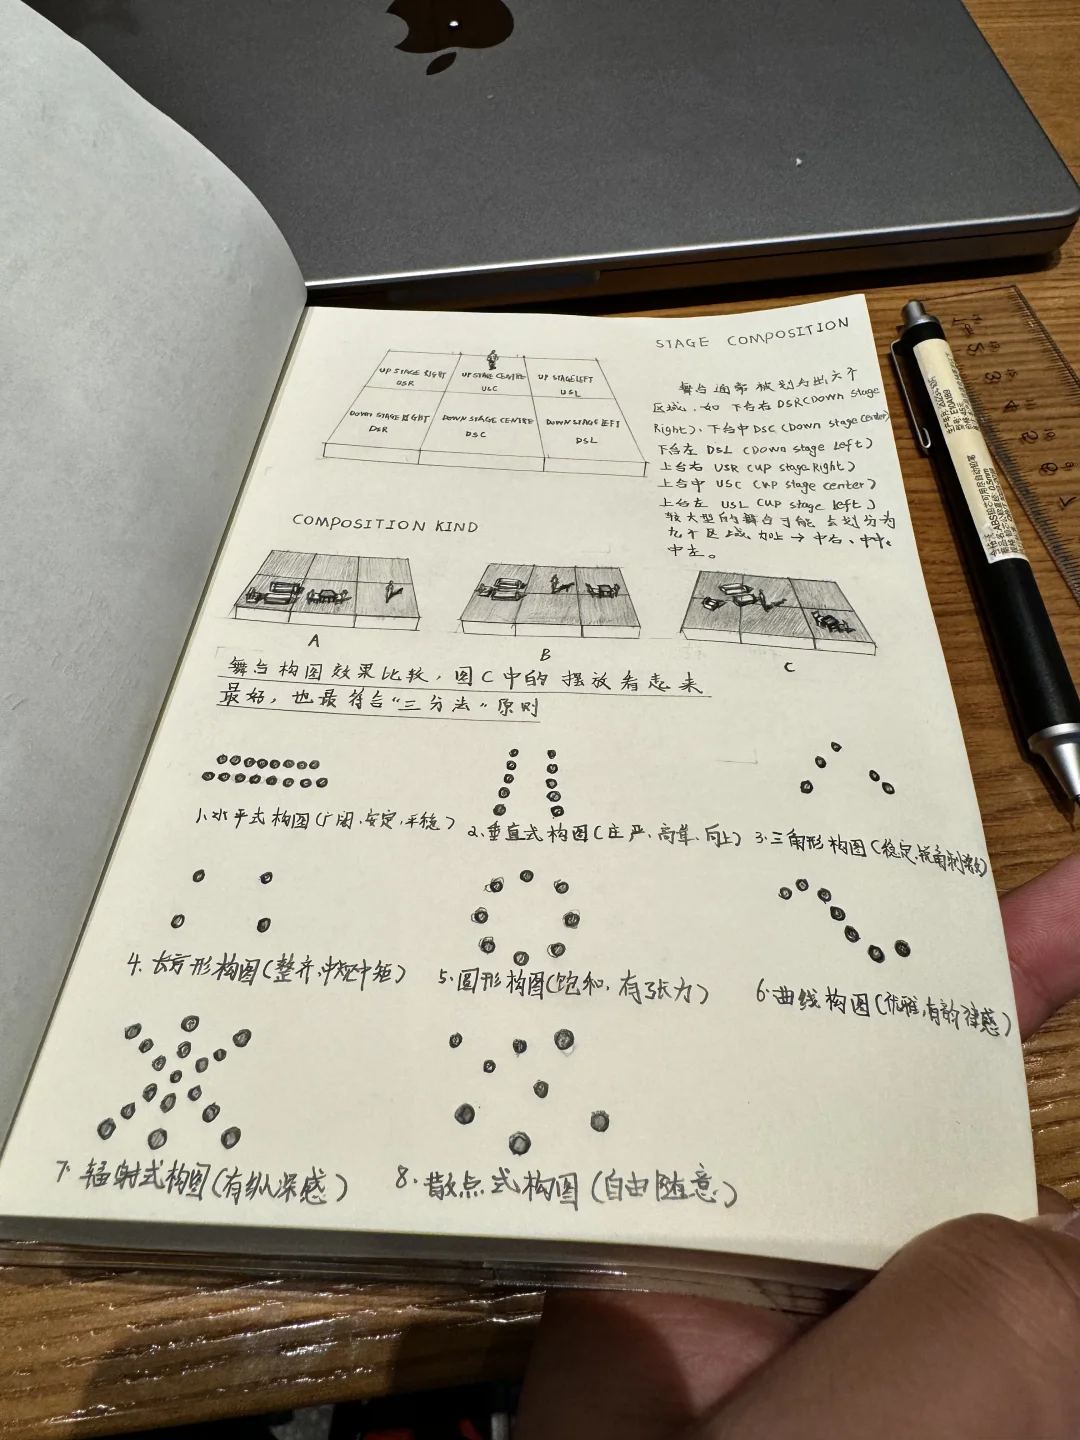 STAGE COMPOSITION
UP STAGE RIGHT
USR
UP STAGE CENTRE
USC
UP STAGE LEFT
USL
DOWN STAGE RIGHT
DSR
DOWN STAGE CENTRE
DSC
DOWN STAGE LEFT
DSL
舞台通常被划为出六个
区域，如下台右 DSR(Down stage
Right)、下台中 DSC (Down stage center)
下台左 DSL (Down stage Left)
上台右 USR (UP stage Right)
上台中 USC (UP stage center)
上台左 USL (UP stage left)
较大型的舞台可能会划分为
九个区域，如上→中右、中中、
中左。
COMPOSITION KIND
A
B
C
舞台构图效果比较，图C中的摆放看起来
最好，也最符合“三分法”原则
1.水平式构图(广阔.安定.平稳)
2.垂直式构图(庄严.高耸.向上)
3.三角形构图(稳定.锐角刺激)
4.长方形构图(整齐.中规中矩)
5.圆形构图(饱和.有张力)
6.曲线构图(优雅.有韵律感)
7.辐射式构图(有纵深感)
8.散点式构图(自由随意)